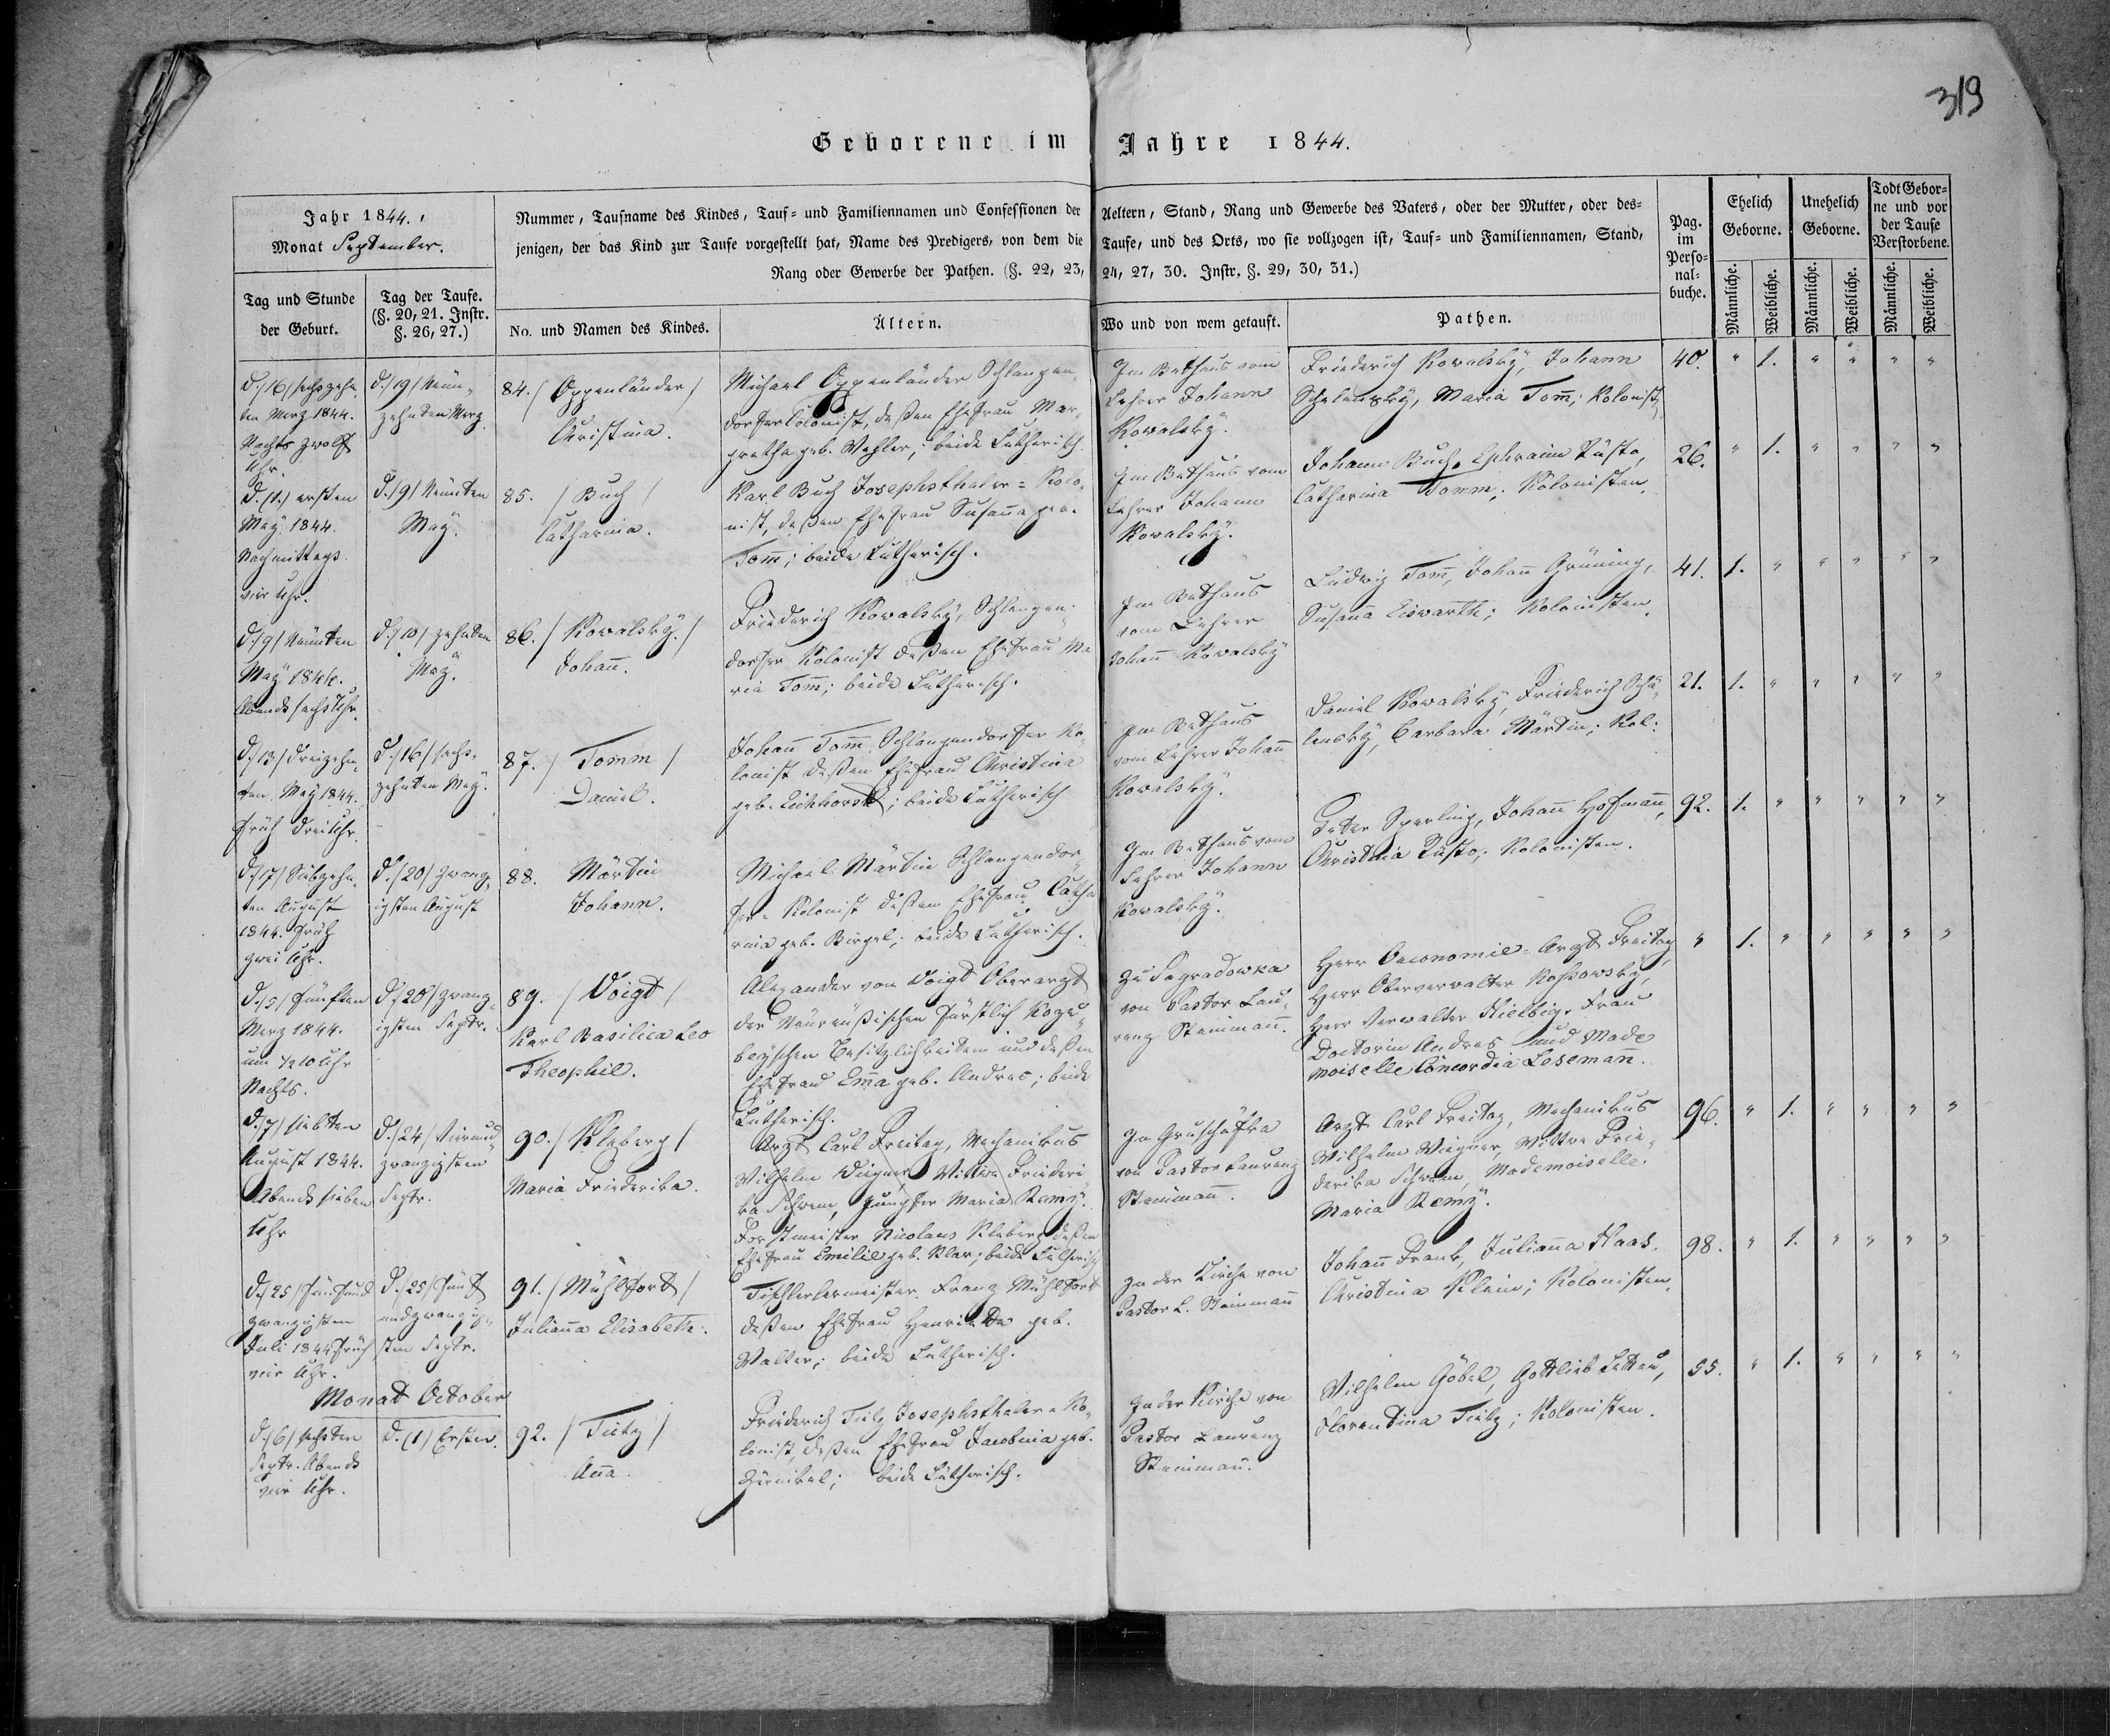 319
Geborene im Jahre 1844.
Jahr 1844.
Monat September.
Nummer, Taufname des Kindes, Tauf= und Familiennamen und Confessionen der Aeltern, Stand, Rang und Gewerbe des Vaters, oder der Mutter, oder des=
jenigen, der das Kind zur Taufe vorgestellt hat, Name des Predigers, von dem die Taufe, und des Orts, wo sie vollzogen ist, Tauf= und Familiennamen, Stand,
Rang oder Gewerbe der Pathen. (§. 22, 23, 24, 27, 30. Instr. §. 29, 30, 31.)
Pag.
im
Perso=
nal=
buche.
Ehelich
Geborne.
Unehelich
Geborne.
Todt Gebor=
ne und vor
der Taufe
Verstorbene.
Tag und Stunde
der Geburt.
Tag der Taufe.
(§. 20, 21. Instr.
§. 26, 27.)
No. und Namen des Kindes.
Ältern.
Wo und von wem getauft.
Pathen.
Männliche.
Weibliche.
Männliche.
Weibliche.
Männliche.
Weibliche.
d. /16/ sechszehn
ten Merz 1844.
Nachts zwölf
Uhr.
d. /19/ Neun
zehnten Merz
84. / Oppenländer /
Christina.
Michael Oppenländer Schlangen
dorfer Colonist, deßen Ehefrau Mar
gretha geb. ; beide Lutherisch.
Im Bethaus vom
Lehrer Johann
Kowalsky.
Friederich Kowalsky, Johann
Schelensky, Maria Tom̄; Kolonist
40. " 1. " " " "
d. /1./ ersten
May 1844.
Nachmittags
vier Uhr.
d. /9/ Neunten
May.
85. / Buch /
Catharina.
Karl Buch Josephsthaler = Kolo
nist, deßen Ehefrau Susan̄a geb.
Tom̄; beide Lutherisch.
Im Bethaus vom
Lehrer Johann
Kowalsky.
Johann Buch, Ephraim Rüsto,
Catharina Tomm; Kolonisten
26. " 1. " " " "
d. /9/ Neunten
May 1844.
Abends sechs Uhr.
d. /10/ zehnten
May.
86. / Kowalsky. /
Johan̄.
Friederich Kowalsky, Schlangen
dorfer Kolonist deßen Ehefrau Ma
ria Tom̄; beide Lutherisch.
Im Bethaus
vom Lehrer
Johan̄ Kowalsky
Ludwig Tom̄, Johan̄ Grüning,
Susan̄a Eiswarth; Kolonisten.
41. 1. " " " " "
d. /13/ dreizehn
ten May 1844.
Früh drei Uhr.
d. /16/ sechs
zehnten May.
87. / Tomm /
Daniel.
Johan̄ Tom̄ Schlangendorfer Ko
lonist deßen Ehefrau Christina
geb. Eichhorst; beide Lutherisch
Im Bethaus
vom Lehrer Johan̄
Kowalsky.
Daniel Kowalsky, Friederich Sche
lensky, Barbara Märtin; Kol:
21. 1. " " " " "
d. /17/ Siebzehn
ten August
1844. Früh
zwei Uhr.
d. /20/ zwanz
igsten August
88. Märtin
Johann.
Michael Märtin Schlangendor
fer = Kolonist deßen Ehefrau Catha
rina geb. Birgel; beide Lutherisch.
Im Bethaus vom
Lehrer Johann
Kowalsky.
Peter Sperling, Johan̄ Hofman̄,
Christina Rüsto; Kolonisten.
92. 1. " " " " "
d. /5/ fünften
Merz 1844.
um ½ 10 Uhr
Nachts.
d. /20/ zwanz
igsten Septr.
89. / Voigt /
Karl Basilica Leo
Theophil.
Alexander von Voigt Oberarzt
der Neureußischen Fürstlich
Besitzlichkeiten und deßen
Ehefrau Em̄a geb. Andres; beide
Lutherisch.
zu Sagradowka
von Pastor Lau
renz Steinman̄.
Herr Oeconomie = Arzt Freitag
Herr Oberverwalter Koßowsky,
Herr Verwalter Kielbig, Frau
Doctorin Andres und Made
moiselle Concordia Leseman̄.
" 1. " " " " "
d. /7/ siebten
August 1844.
Abends sieben
Uhr
d. /24/ Vierund
zwanzigsten
Septr.
90. / Kleberg /
Maria Friederika.
Arzt Carl Freitag, Mechanikus
Wilhelm Wiegner, Wittwe Friederi
ka Schwem, Jungfer Maria Remy.
Forstmeister Nicolaus Kleberg deßen
Ehefrau Emilie geb. Klar; beide Lutherisch
In Gruschefka
von Pastor Laurenz
Steinman̄.
Arzt Carl Freitag, Mechanikus
Wilhelm Wiegner, Wittwe Frie
derika Schwem, Mademoiselle
Maria Remy.
96. " 1. " " " "
d. /25/ fünfund
zwanzigsten
Juli 1844 Früh
vier Uhr.
d. /25/ fünf
undzwanzig
sten Septr.
91. / Mühlfort /
Julian̄a Elisabeth.
Tischlermeister Franz Mühlfort
deßen Ehefrau Henriette geb.
Walter; beide Lutherisch.
In der Kirche von
Pastor L. Steinman̄
Johan̄ Frank, Julian̄a Haas.
Christina Klein; Kolonisten.
98. " 1. " " " "
Monat October
d. /6/ sechsten
Septr. Abends
vier Uhr.
d. /1/ Ersten.
92. / Tietz /
An̄a.
Friederich Tietz Josephsthaler = Ko
lonist, deßen Ehefrau Jacobina geb.
Zirnikel; beide Lutherisch.
In der Kirche von
Pastor Laurenz
Steinman̄.
Wilhelm Göbel, Gottlieb Lettau,
Florentina Tietz; Kolonisten.
55. " 1. " " " "